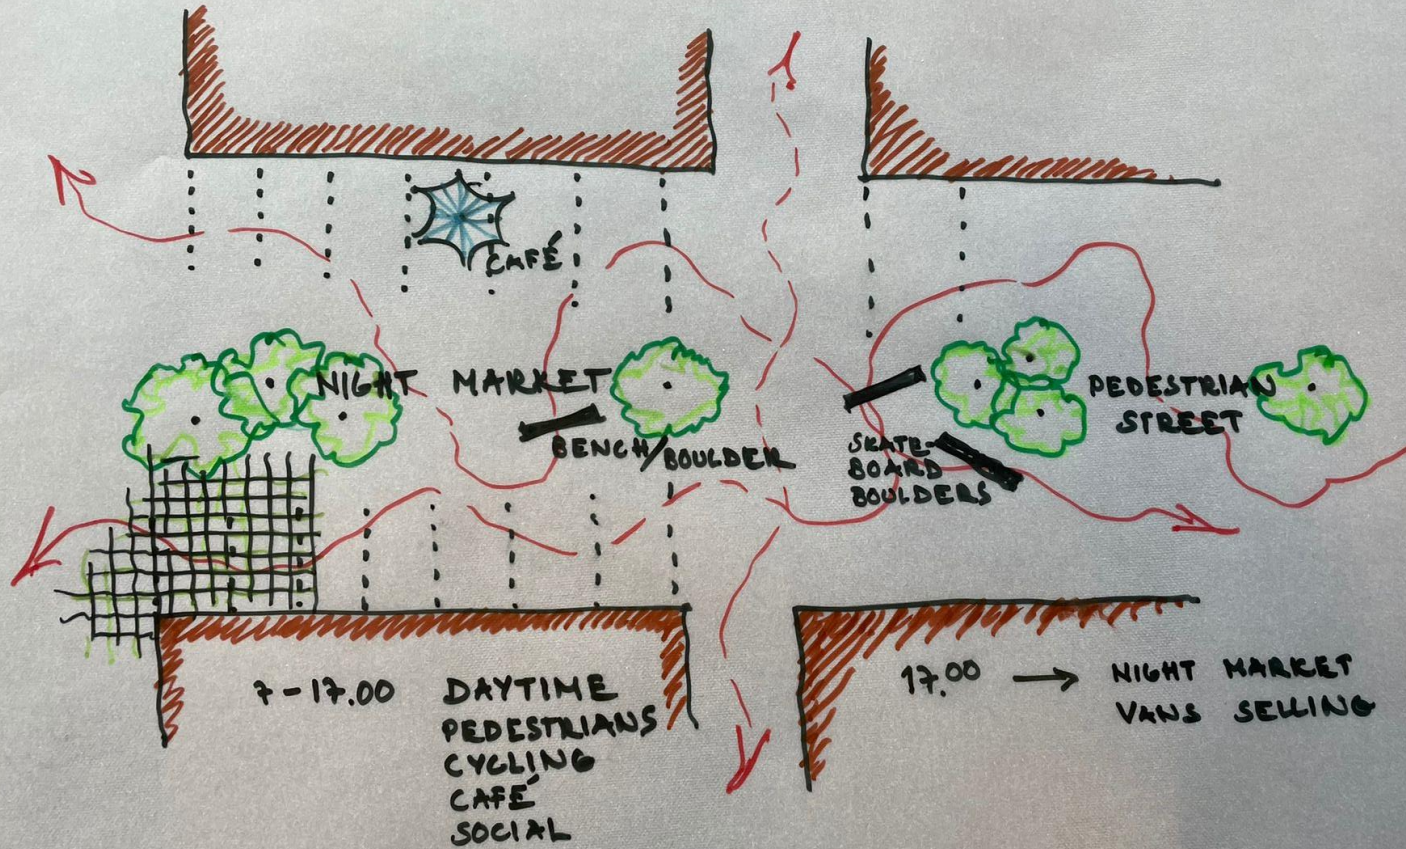 CAFÉ
NIGHT MARKET
BENCH/BOULDER
SKATE-
BOARD
BOULDERS
PEDESTRIAN
STREET
7-17.00 DAYTIME
PEDESTRIANS
CYCLING
CAFÉ
SOCIAL
17.00 → NIGHT MARKET
VANS SELLING